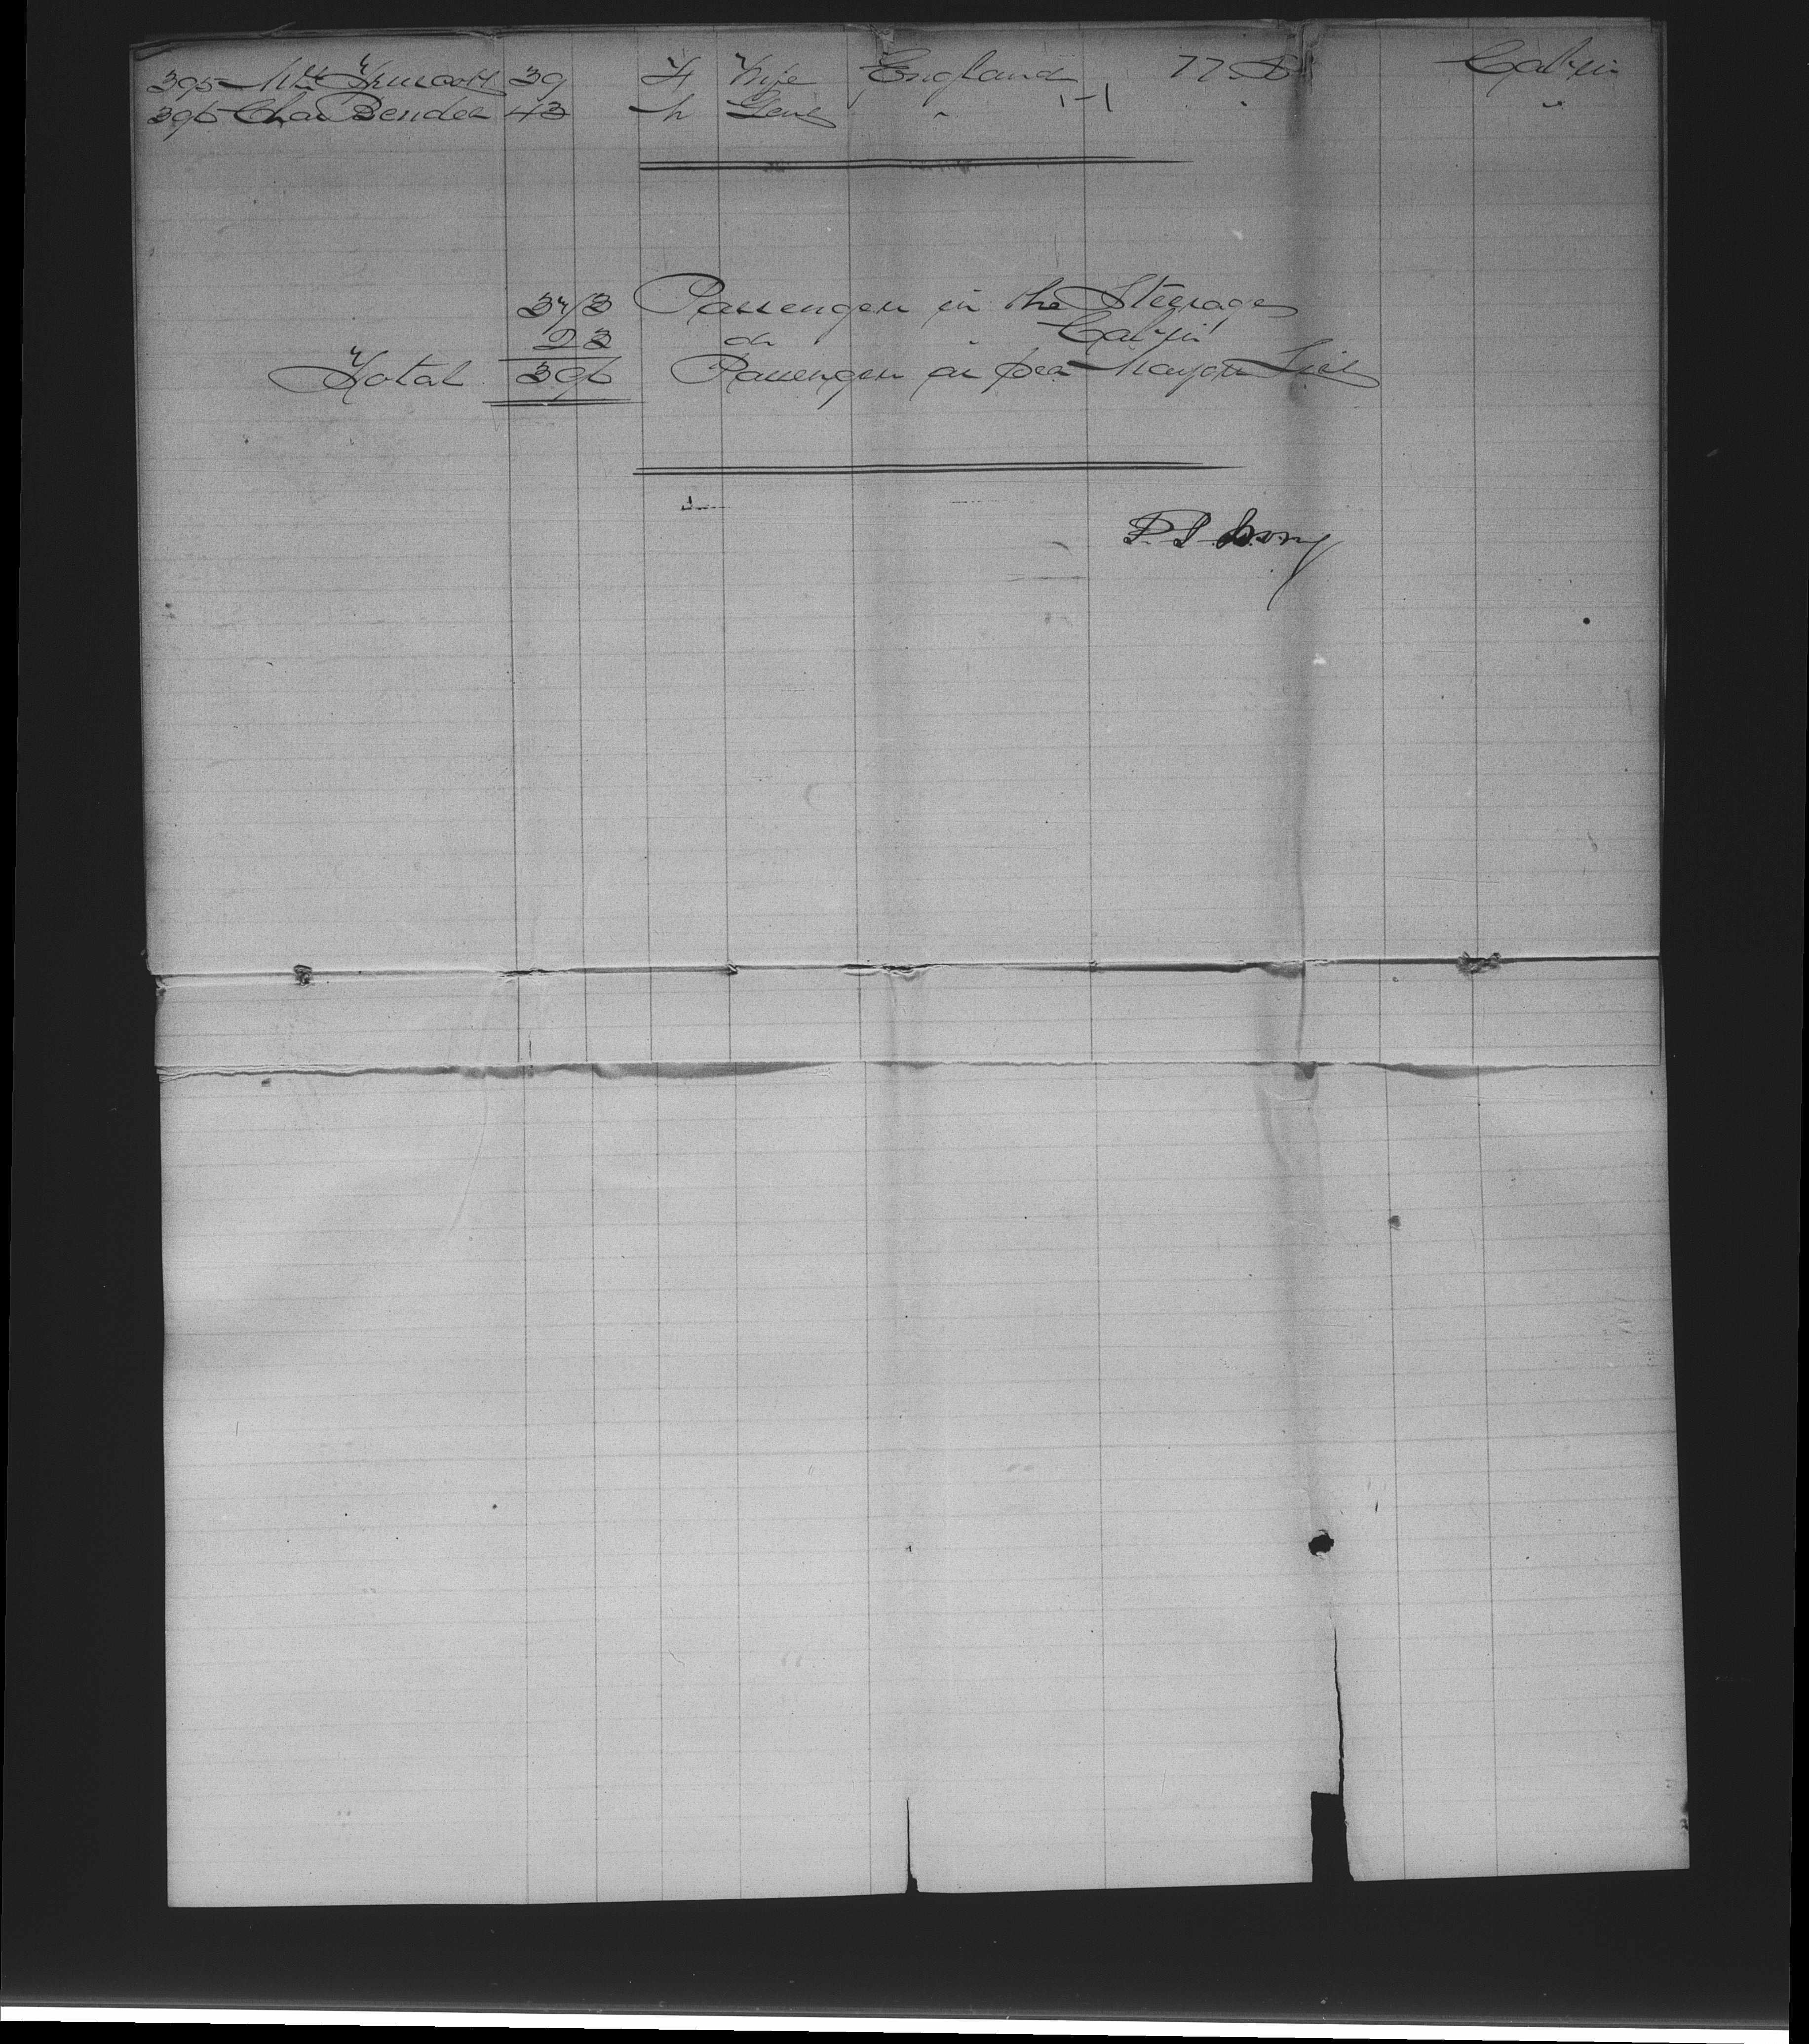 395 Mrs 39 F Wife England U S Cabin
396 Chas Bender 43 M Gent " " "
373 Passengers in the Steerage
23 do " Cabin
Total 396 Passengers as per List